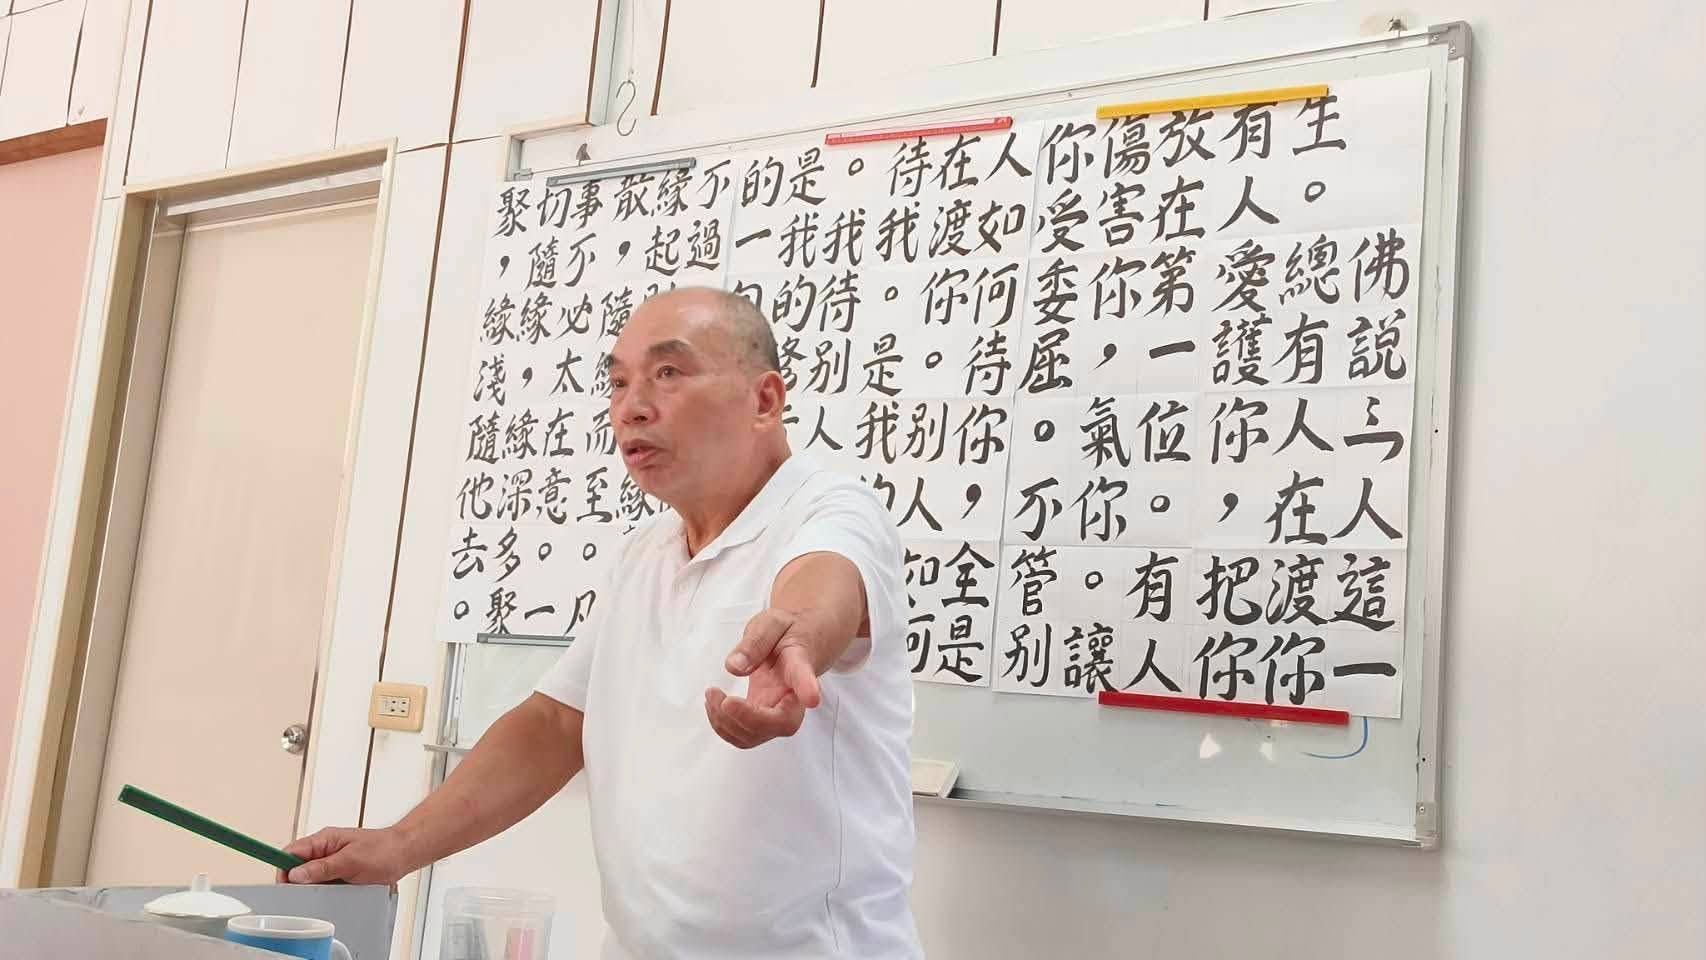 佛說三人這一
生。總有人在渡你
有人愛護你，把你
放在第一位。有人
傷害你，氣你。讓
你受委屈。不管別
人如何待你，全是
在渡你。別人如何
待我。是我的
。我待別人
是我的修行
的一句
不過
緣起
散，隨緣而至。凡
事不必太在意。一
切隨緣，緣深多聚
聚，緣淺隨他去。